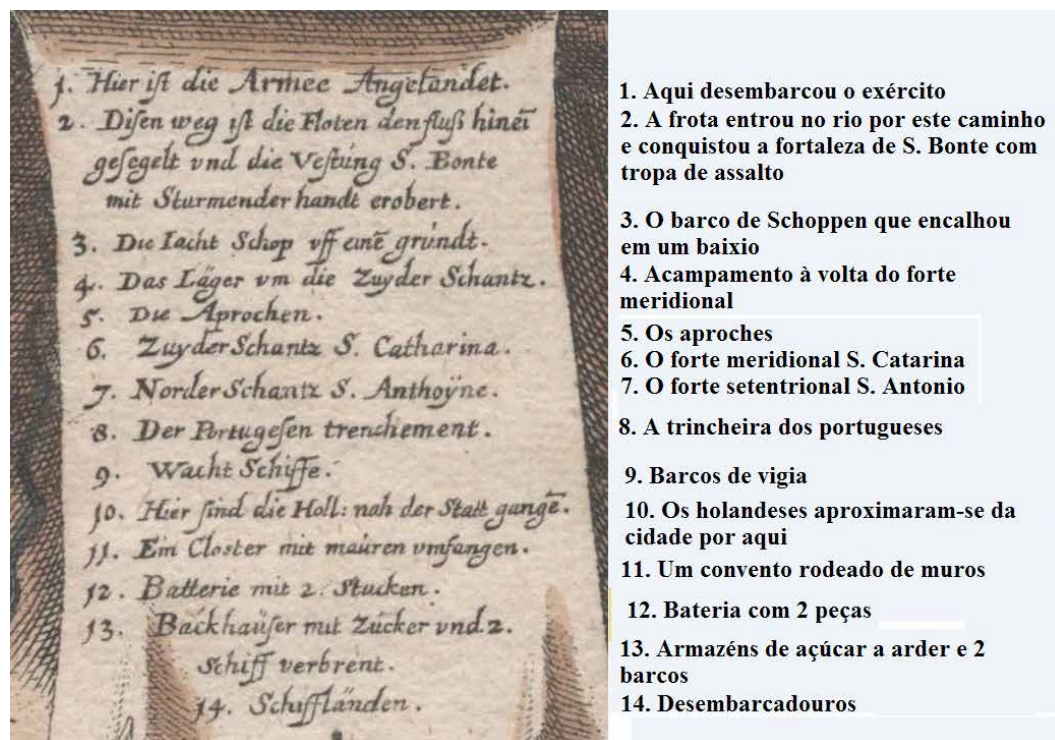 1. Hier ist die Armee Angelandet.
2. Disen weg ist die Floten den fluß hineī
gesegelt vnd die Vestúng S. Bonte
mit Sturmender handt erobert.
3. Die Iacht Schop vff einē grúndt.
4. Das Läger vm die Zuyder Schantz.
5. Die Aprochen.
6. Zuyder Schantz S. Catharina.
7. Norder Schantz S. Anthoÿne.
8. Der Portugesen trenchement.
9. Wacht Schiffe.
10. Hier sind die Holl: nah der Statt gangē.
11. Ein Closter mit maúren vmfangen.
12. Batterie mit 2. Stucken.
13. Backhaüser mit Zúcker vnd. 2.
Schiff verbrent.
14. Schiffländen.
1. Aqui desembarcou o exército
2. A frota entrou no rio por este caminho
e conquistou a fortaleza de S. Bonte com
tropa de assalto
3. O barco de Schoppen que encalhou
em um baixio
4. Acampamento à volta do forte
meridional
5. Os aproches
6. O forte meridional S. Catarina
7. O forte setentrional S. Antonio
8. A trincheira dos portugueses
9. Barcos de vigia
10. Os holandeses aproximaram-se da
cidade por aqui
11. Um convento rodeado de muros
12. Bateria com 2 peças
13. Armazéns de açúcar a arder e 2
barcos
14. Desembarcadouros